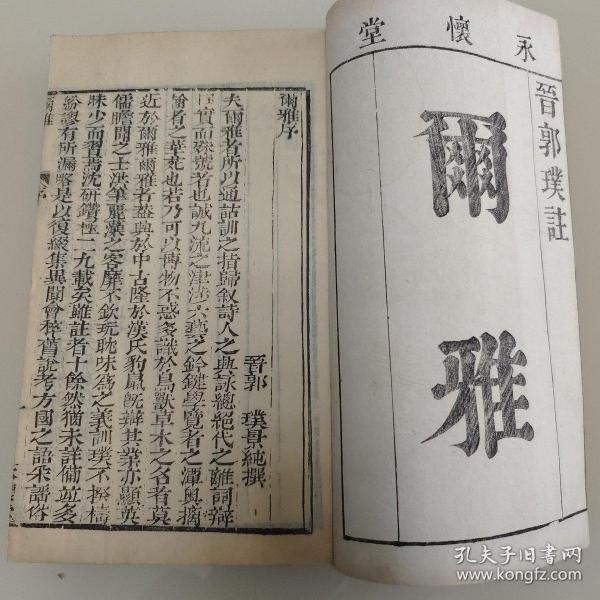 永懷堂
晉郭璞註
爾雅
爾雅序
晉郭 璞景純撰
夫爾雅者所以通詁訓之指歸敘詩人之興詠總絕代之離詞辯
同實而殊號者也誠九流之津涉六藝之鈐鍵學覽者之潭奧摛
翰者之華苑也若乃可以博物不惑多識於鳥獸草木之名者莫
近於爾雅爾雅者蓋興於中古隆於漢氏豹鼠旣辯其業亦顯英
儒贍聞之士洪筆麗藻之客靡不欽玩耽味爲之義訓璞不揆檮
昧少而習焉沈研鑽極二九載矣雖註者十餘然猶未詳備竝多
紛謬有所漏略是以復綴集異聞會稡舊說考方國之語采謠俗
爾雅
序
孔夫子旧书网
www.kongfz.com